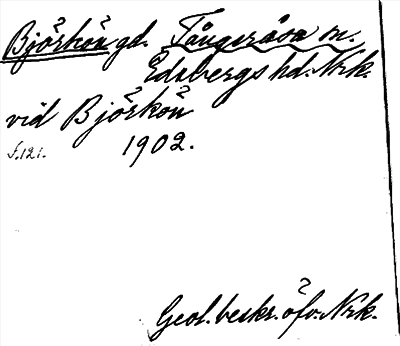 Björkön gd. Tångeråsa sn.
Edsbergs hd. Nrk.
vid Björkön
s.121. 1902.
Geol. beskr. öfv. Nrk.